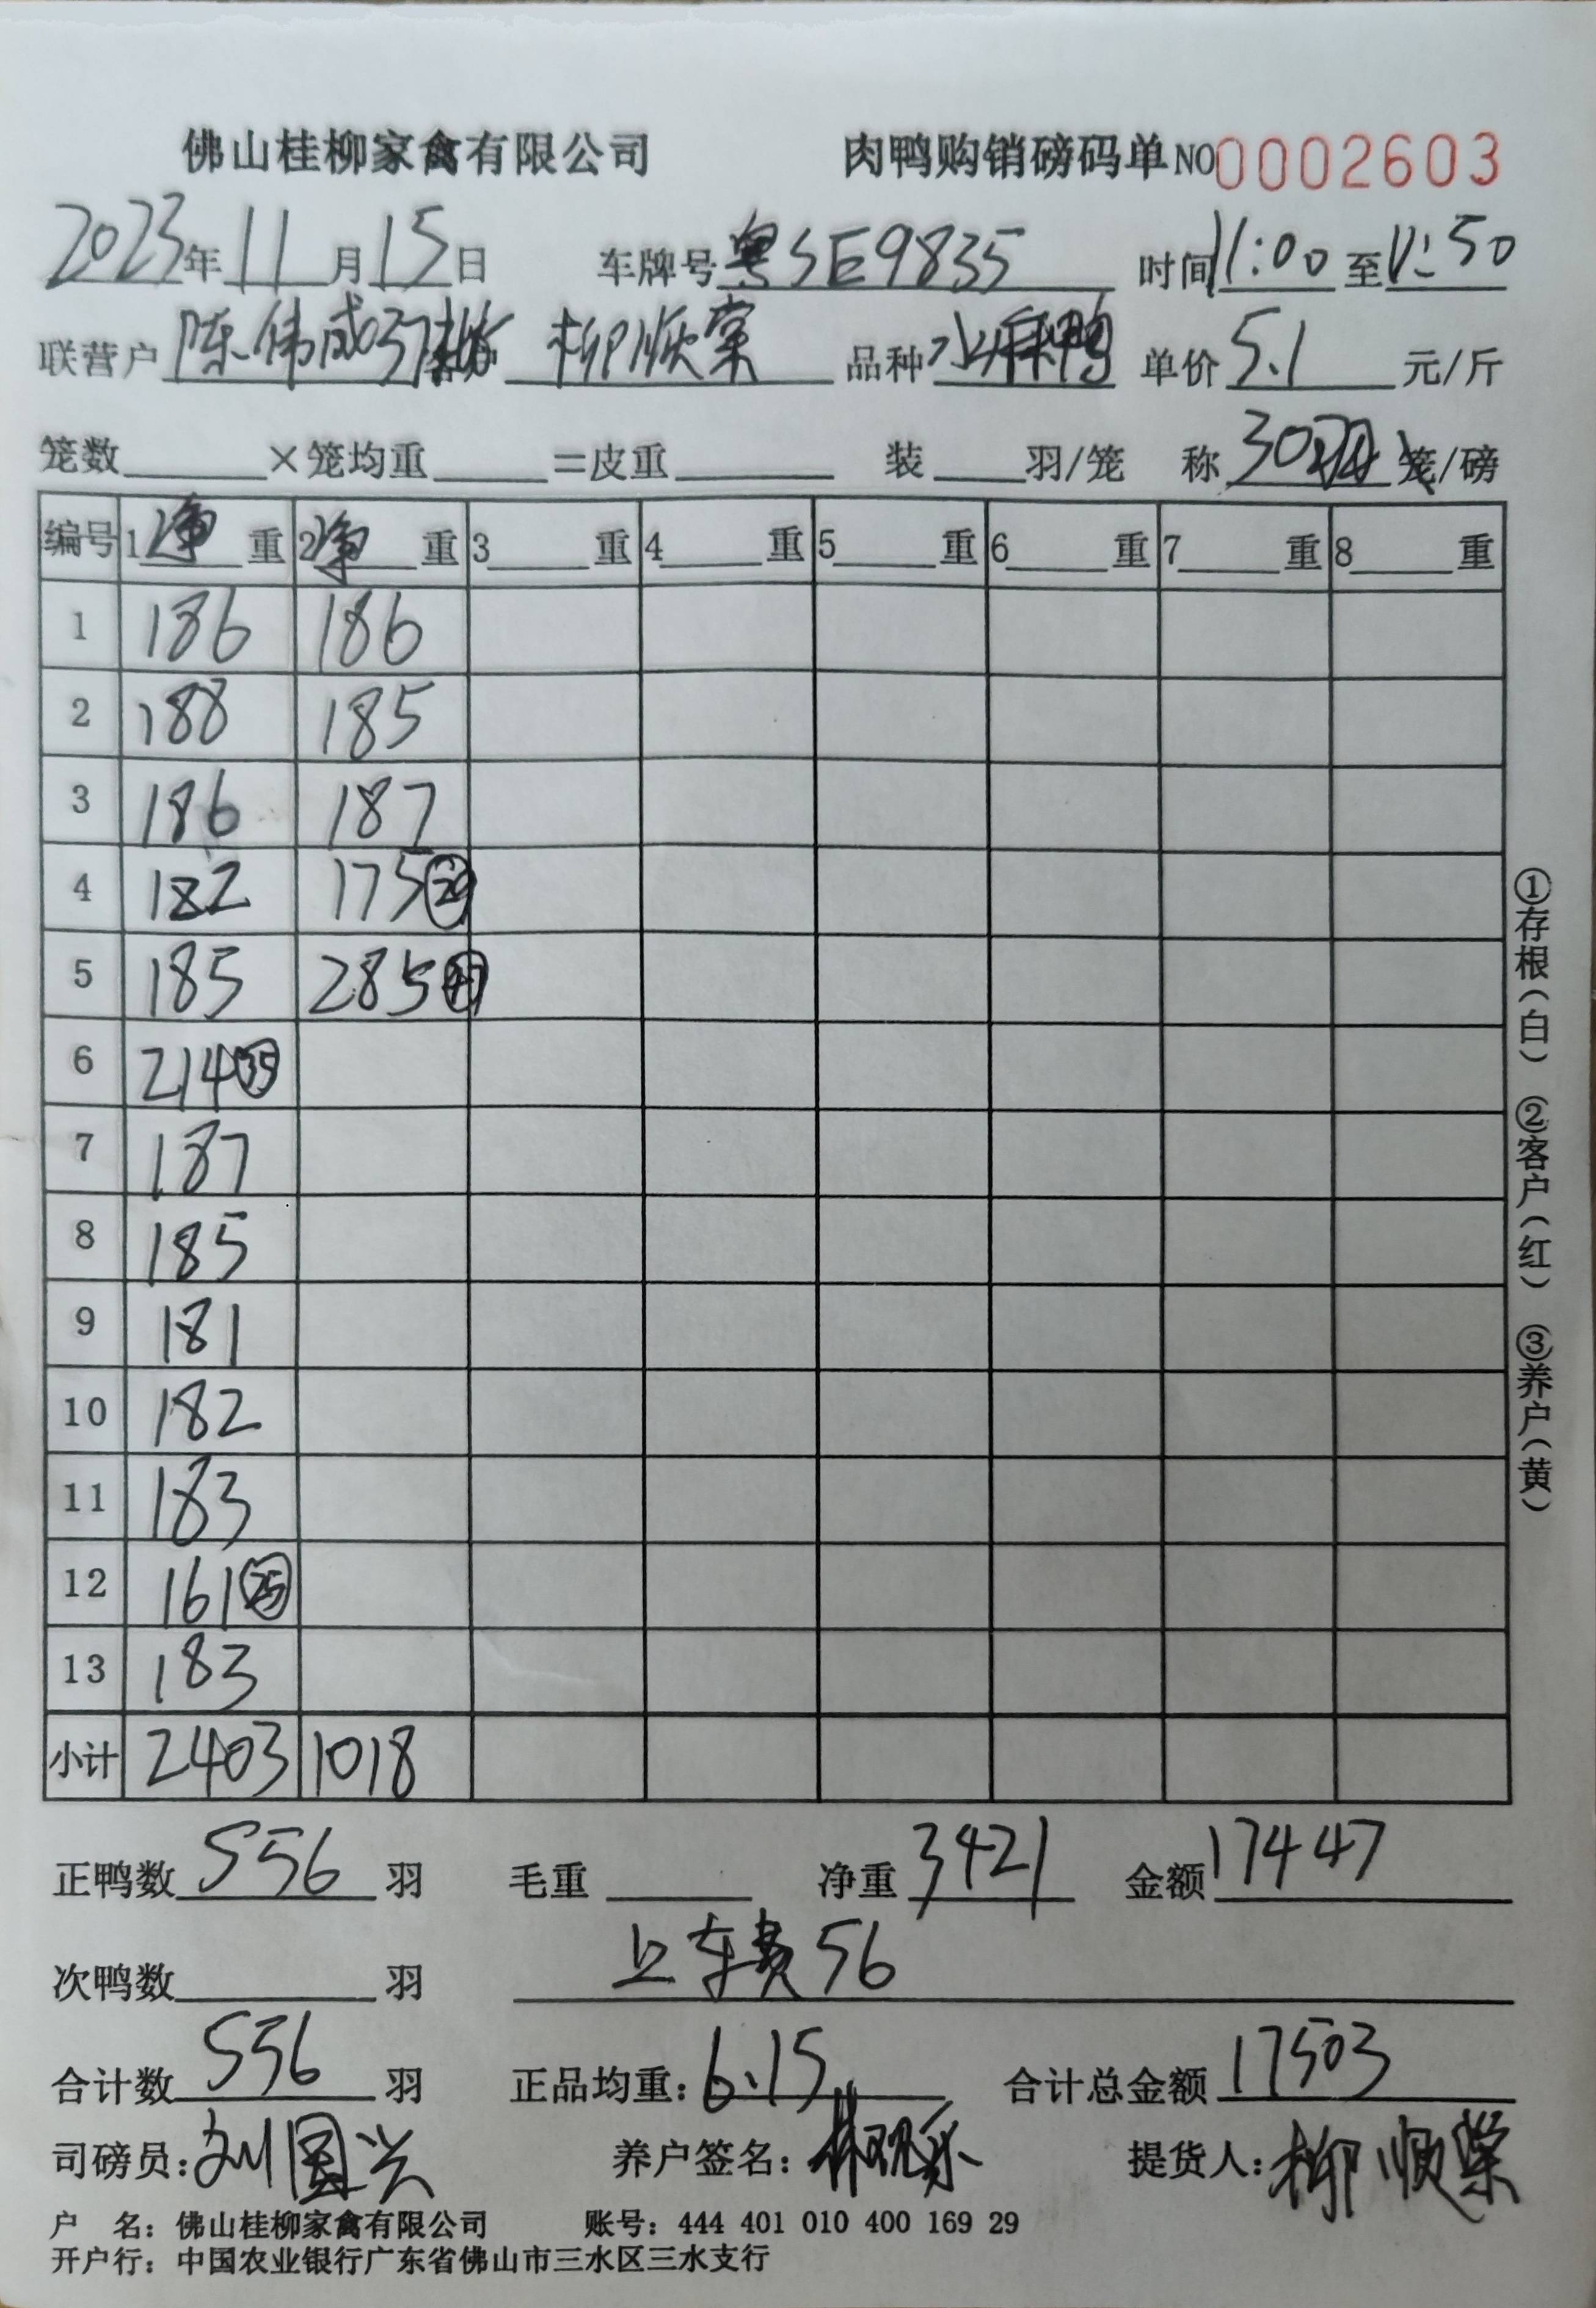 佛山桂柳家禽有限公司 肉鸭购销磅码单NO0002603
2023年11月15日 车牌号粤SE9835 时间11:00至12:50
联营户陈伟成 柳顺棠 品种水麻鸭 单价5.1元/斤
笼数 ×笼均重 =皮重 装 羽/笼 称30羽 笼/磅
编号 1净重 2净重 3 重 4 重 5 重 6 重 7 重 8 重
1 186 186
2 188 185
3 186 187
4 182 175 29
5 185 285 47
6 214 35
7 187
8 185
9 181
10 182
11 183
12 161 25
13 183
小计 2403 1018
正鸭数556羽 毛重 净重3421 金额17447
次鸭数 羽 上车费56
合计数556羽 正品均重:6.15 合计总金额17503
司磅员:刘国兴 养户签名: 提货人:柳顺棠
户 名:佛山桂柳家禽有限公司 账号:444 401 010 400 169 29
开户行:中国农业银行广东省佛山市三水区三水支行
①存根(白) ②客户(红) ③养户(黄)